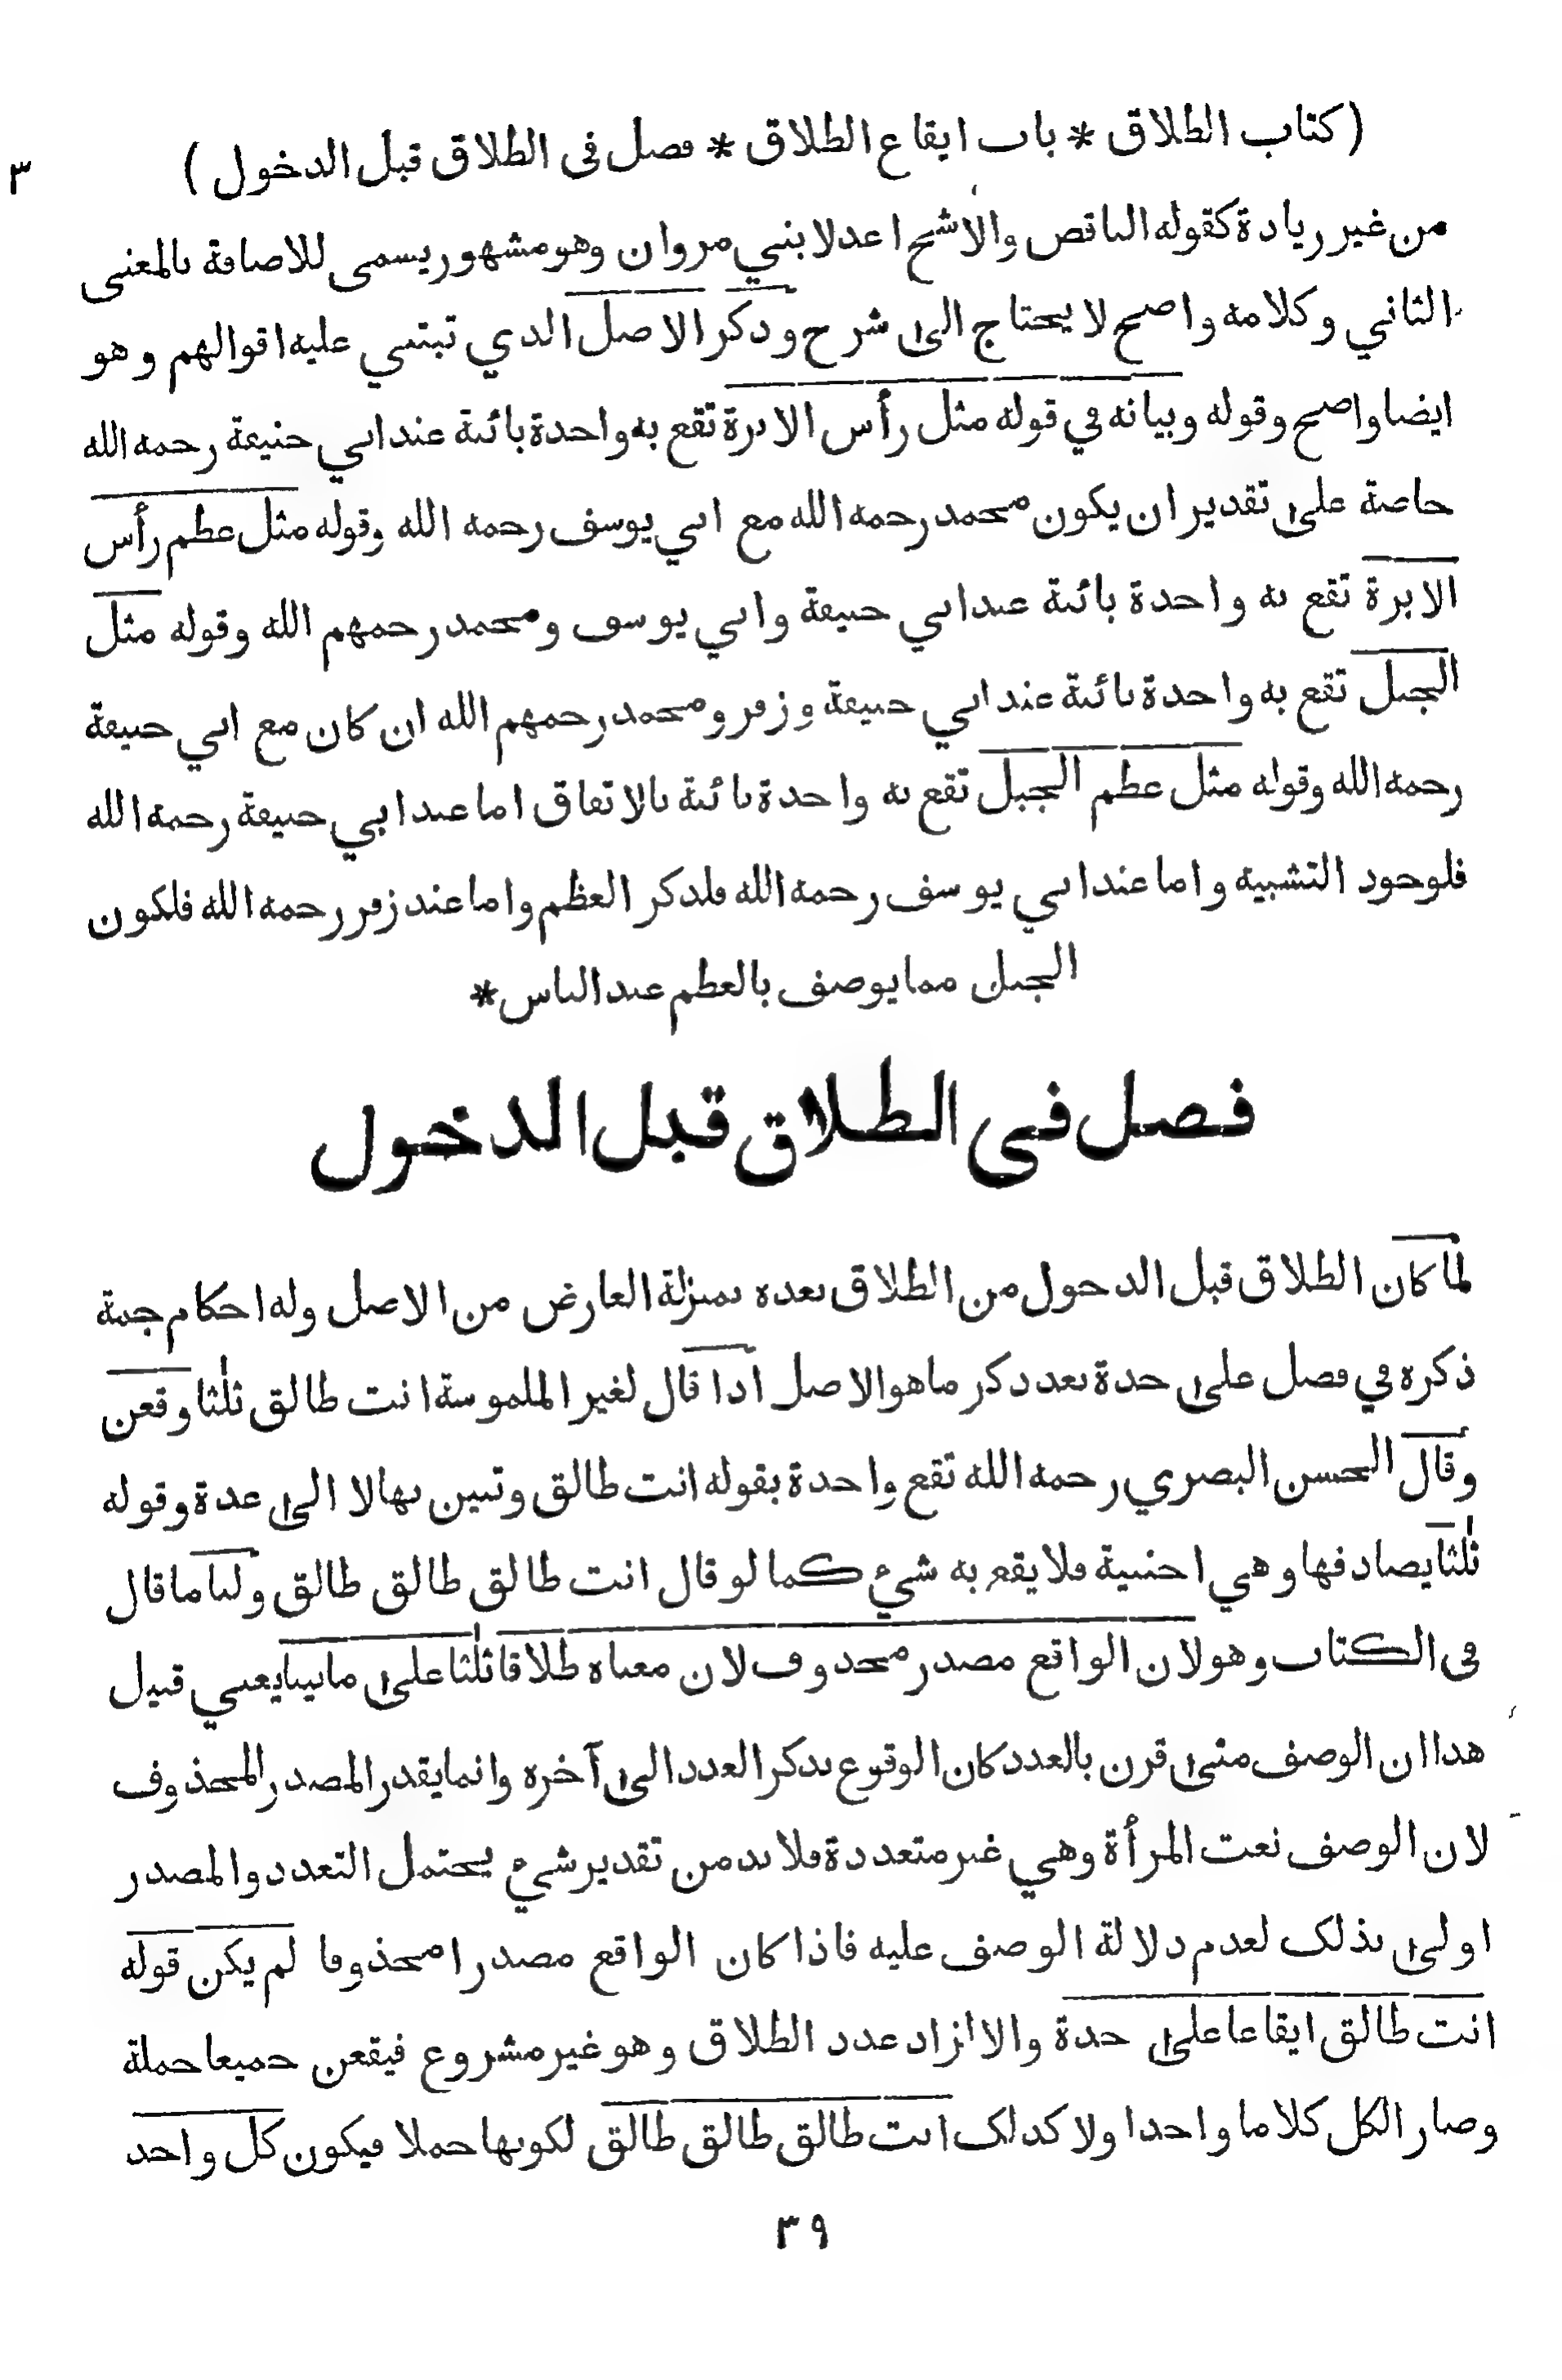 (كتاب الطلاق * باب ايقاع الطلاق * فصل فى الطلاق قبل الدخول)
٣
من غير زيادة كقوله الناقص والاشج اعدلا بني مروان وهو مشهور يسمى للاضافة بالمعنى
الثاني وكلامه واضح لا يحتاج الى شرح وذكر الاصل الذي تبتني عليه اقوالهم وهو
ايضا واضح وقوله وبيانه في قوله مثل رأس الابرة تقع به واحدة بائنة عند ابي حنيفة رحمه الله
خاصة على تقدير ان يكون محمد رحمه الله مع ابي يوسف رحمه الله وقوله مثل عظم رأس
الابرة تقع به واحدة بائنة عند ابي حنيفة وابي يوسف ومحمد رحمهم الله وقوله مثل
الجبل تقع به واحدة بائنة عند ابي حنيفة وزفر ومحمد رحمهم الله ان كان مع ابي حنيفة
رحمه الله وقوله مثل عظم الجبل تقع به واحدة بائنة بالاتفاق اما عند ابي حنيفة رحمه الله
فلوجود التشبيه واما عند ابي يوسف رحمه الله فلذكر العظم واما عند زفر رحمه الله فلكون
الجبل مما يوصف بالعظم عند الناس *
فصل فى الطلاق قبل الدخول
لما كان الطلاق قبل الدخول من الطلاق بعده بمنزلة العارض من الاصل وله احكام جمة
ذكره في فصل على حدة بعد ذكر ما هو الاصل اذا قال لغير الملموسة انت طالق ثلثا وقعن
وقال الحسن البصري رحمه الله تقع واحدة بقوله انت طالق وتبين بها لا الى عدة وقوله
ثلثا يصادفها وهي اجنبية فلا يقع به شيء كما لو قال انت طالق طالق طالق ولنا ما قال
فى الكتاب وهو لان الواقع مصدر محذوف لان معناه طلاقا ثلثا على ما بينا يعني قبيل
هذا ان الوصف متى قرن بالعدد كان الوقوع بذكر العدد الى آخره وانما يقدر المصدر المحذوف
لان الوصف نعت المرأة وهي غير متعددة فلا بد من تقدير شيء يحتمل التعدد والمصدر
اولى بذلك لعدم دلالة الوصف عليه فاذا كان الواقع مصدرا محذوفا لم يكن قوله
انت طالق ايقاعا على حدة والا لزاد عدد الطلاق وهو غير مشروع فيقعن جميعا جملة
وصار الكل كلاما واحدا ولا كذلك انت طالق طالق طالق لكونها جملا فيكون كل واحد
٣٩